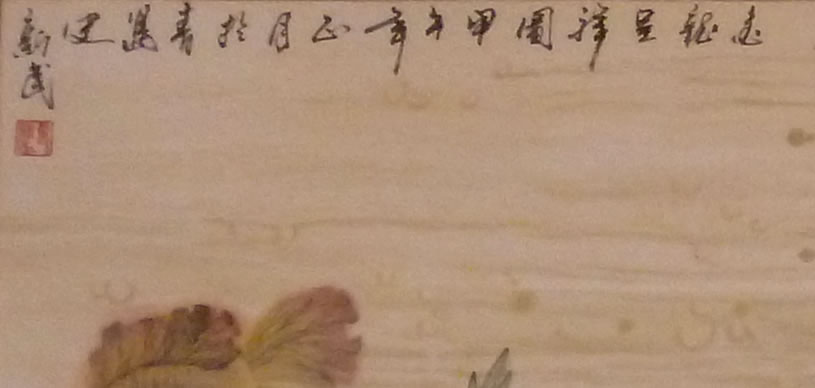 龍呈祥圖甲午年正月於青島史
新武